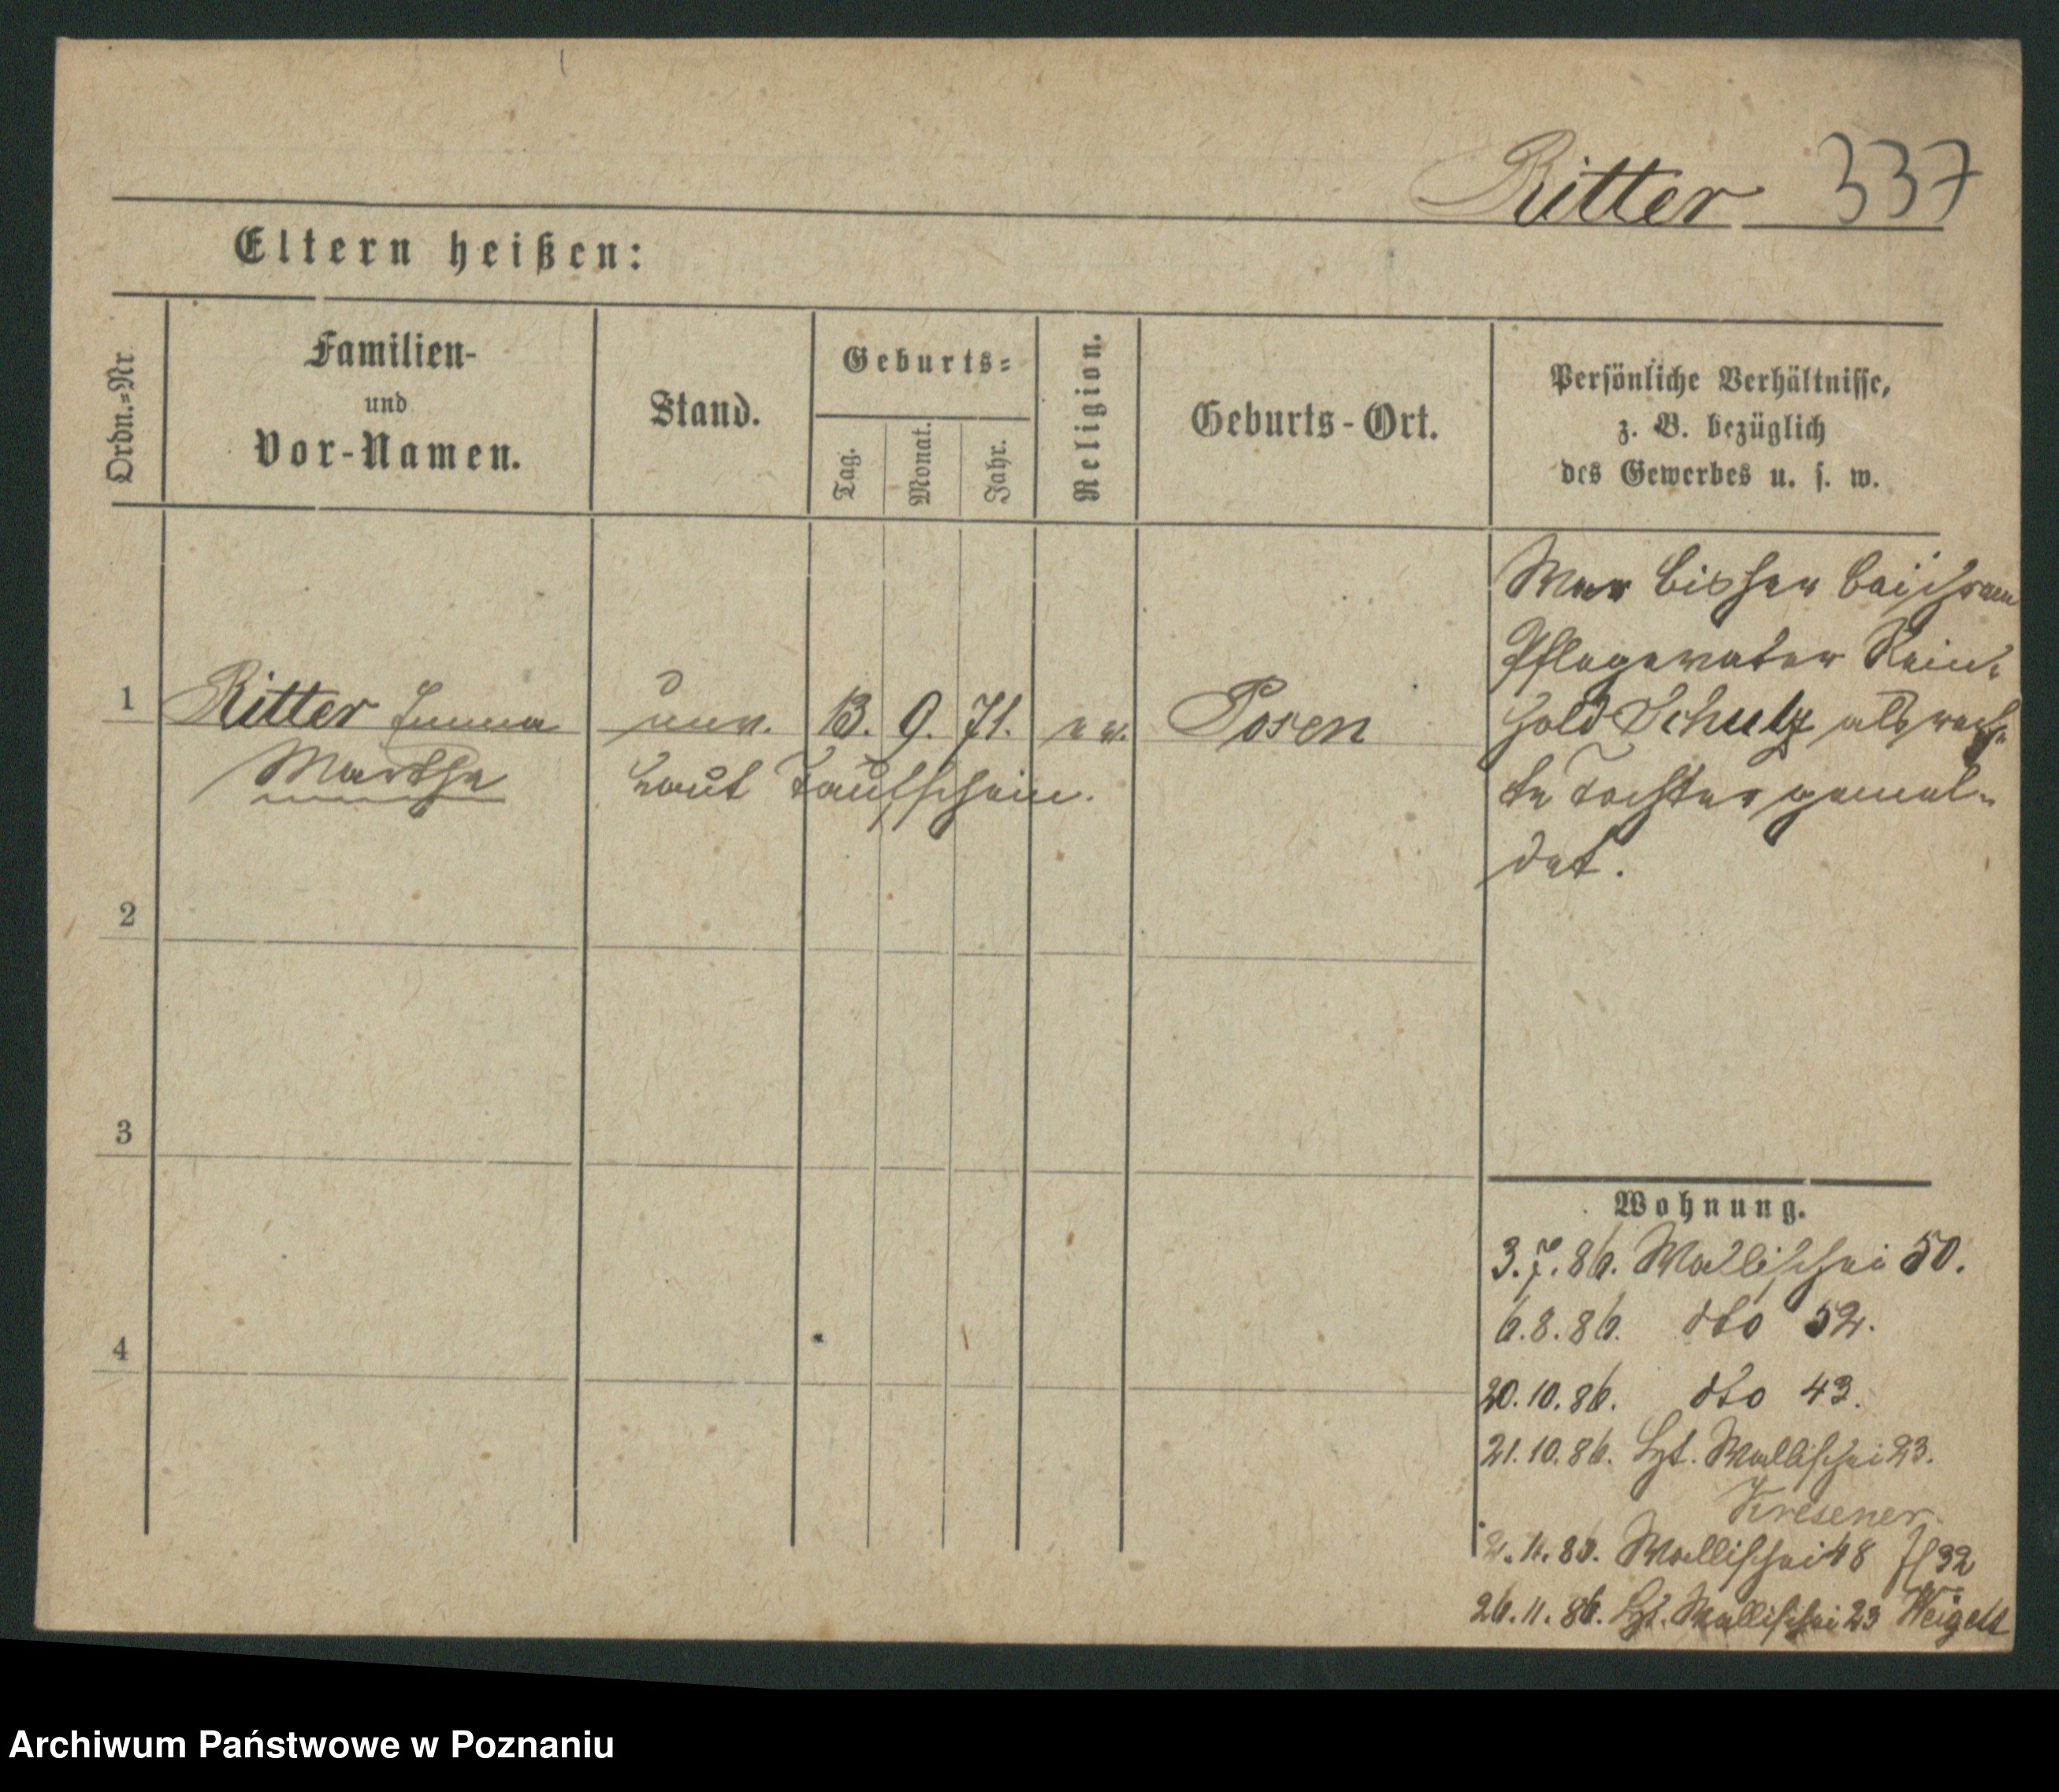 Ritter 337
Eltern heißen:
Ordn.-Nr
Familien-
und
Vor-Namen.
Stand.
Geburts-
Tag.
Monat.
Jahr.
Religion.
Geburts-Ort.
Persönliche Verhältnisse,
z. B. bezüglich
des Gewerbes u. s. w.
1
Ritter Emma
Martha
unv.
13. 9. 71.
ev.
Posen
laut Taufschein.
War bisher bei ihrem
Pflegevater Rein-
hold Schulz als rech-
te Tochter gemel-
det.
2
3
4
Wohnung.
3.7.86. Wallischei 50.
6.8.86. dto 52.
20.10.86. dto 43.
21.10.86. Wallischei 23.
Kresener
2.11.86. Wallischei 48
26.11.86. Wallischei 23 Weigelt
Archiwum Państwowe w Poznaniu